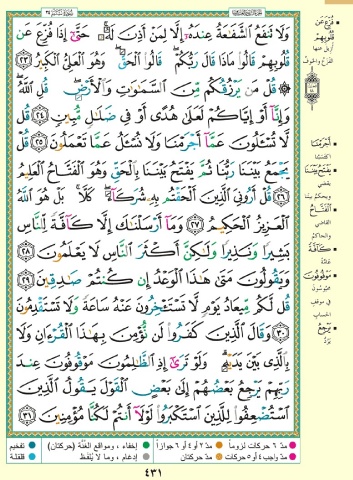 وَلَا تَنفَعُ ٱلشَّفَٰعَةُ عِندَهُۥٓ إِلَّا لِمَنْ أَذِنَ لَهُۥ حَتَّىٰٓ إِذَا فُزِّعَ عَن
قُلُوبِهِمْ قَالُوا۟ مَاذَا قَالَ رَبُّكُمْ قَالُوا۟ ٱلْحَقَّ وَهُوَ ٱلْعَلِىُّ ٱلْكَبِيرُ ٢٣
قُلْ مَن يَرْزُقُكُم مِّنَ ٱلسَّمَٰوَٰتِ وَٱلْأَرْضِ قُلِ ٱللَّهُ
وَإِنَّآ أَوْ إِيَّاكُمْ لَعَلَىٰ هُدًى أَوْ فِى ضَلَٰلٍ مُّبِينٍ ٢٤ قُل
لَّا تُسْـَٔلُونَ عَمَّآ أَجْرَمْنَا وَلَا نُسْـَٔلُ عَمَّا تَعْمَلُونَ ٢٥ قُلْ
يَجْمَعُ بَيْنَنَا رَبُّنَا ثُمَّ يَفْتَحُ بَيْنَنَا بِٱلْحَقِّ وَهُوَ ٱلْفَتَّاحُ ٱلْعَلِيمُ
٢٦ قُلْ أَرُونِىَ ٱلَّذِينَ أَلْحَقْتُم بِهِۦ شُرَكَآءَ كَلَّا بَلْ هُوَ ٱللَّهُ
ٱلْعَزِيزُ ٱلْحَكِيمُ ٢٧ وَمَآ أَرْسَلْنَٰكَ إِلَّا كَآفَّةً لِّلنَّاسِ
بَشِيرًا وَنَذِيرًا وَلَٰكِنَّ أَكْثَرَ ٱلنَّاسِ لَا يَعْلَمُونَ ٢٨
وَيَقُولُونَ مَتَىٰ هَٰذَا ٱلْوَعْدُ إِن كُنتُمْ صَٰدِقِينَ ٢٩
قُل لَّكُم مِّيعَادُ يَوْمٍ لَّا تَسْتَـْٔخِرُونَ عَنْهُ سَاعَةً وَلَا تَسْتَقْدِمُونَ
٣٠ وَقَالَ ٱلَّذِينَ كَفَرُوا۟ لَن نُّؤْمِنَ بِهَٰذَا ٱلْقُرْءَانِ وَلَا
بِٱلَّذِى بَيْنَ يَدَيْهِ وَلَوْ تَرَىٰٓ إِذِ ٱلظَّٰلِمُونَ مَوْقُوفُونَ عِندَ
رَبِّهِمْ يَرْجِعُ بَعْضُهُمْ إِلَىٰ بَعْضٍ ٱلْقَوْلَ يَقُولُ ٱلَّذِينَ
ٱسْتُضْعِفُوا۟ لِلَّذِينَ ٱسْتَكْبَرُوا۟ لَوْلَآ أَنتُمْ لَكُنَّا مُؤْمِنِينَ ٣١
فُزِّعَ عَن
قُلُوبِهِمْ
أزيل عنها
الفزع والخوف
أَجْرَمْنَا
اكتسبنا
يَفْتَحُ بَيْنَنَا
يقضي
ويحكم بيننا
ٱلْفَتَّاحُ
القاضي
والحاكم
كَآفَّةً
عامّة
مَوْقُوفُونَ
محبوسون
في موقف
الحساب
يَرْجِعُ
يردّ
مدّ ٦ حركات لزوماً
مدّ ٢ أو ٤ أو ٦ جوازاً
إخفاء، ومواقع الغنّة (حركتان)
تفخيم
مدّ واجب ٤ أو ٥ حركات
مدّ حركتان
إدغام، وما لا يُلفظ
قلقلة
٤٣١